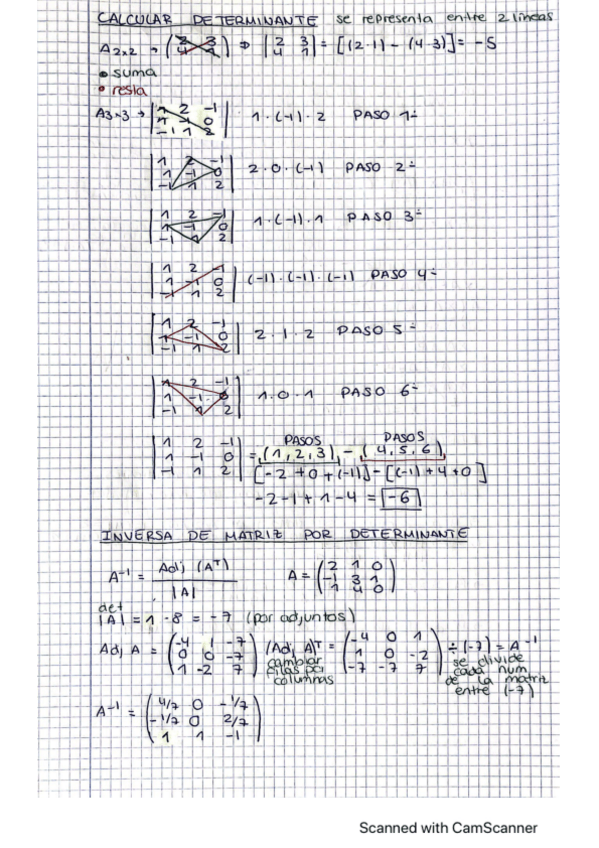 CALCULAR DETERMINANTE se representa entre 2 líneas
A2x2 → (2 3 / 4 1) ⇒ |2 3 / 4 1| = [(2·1) - (4·3)] = -5
• suma
• resta
A3x3 → |1 2 -1 / 1 -1 0 / -1 1 2| 1·(-1)·2 PASO 1º
|1 2 -1 / 1 -1 0 / -1 1 2| 2·0·(-1) PASO 2º
|1 2 -1 / 1 -1 0 / -1 1 2| 1·(-1)·1 PASO 3º
|1 2 -1 / 1 -1 0 / -1 1 2| (-1)·(-1)·(-1) PASO 4º
|1 2 -1 / 1 -1 0 / -1 1 2| 2·1·2 PASO 5º
|1 2 -1 / 1 -1 0 / -1 1 2| 1·0·1 PASO 6º
PASOS PASOS
|1 2 -1 / 1 -1 0 / -1 1 2| = (1,2,3) - (4,5,6)
[-2+0+(-1)] - [(-1)+4+0]
-2-1+1-4 = -6
INVERSA DE MATRIZ POR DETERMINANTE
A⁻¹ = Adj (Aᵀ) / |A| A = (2 1 0 / -1 3 1 / 1 4 0)
det
|A| = 1 - 8 = -7 (por adjuntos)
Adj A = (-4 1 -7 / 0 0 -7 / 1 -2 7) (Adj A)ᵀ = (-4 0 1 / 1 0 -2 / -7 -7 7) ÷ (-7) = A⁻¹
cambiar filas por columnas
se divide cada num de la matriz entre (-7)
A⁻¹ = (4/7 0 -1/7 / -1/7 0 2/7 / 1 1 -1)
Scanned with CamScanner